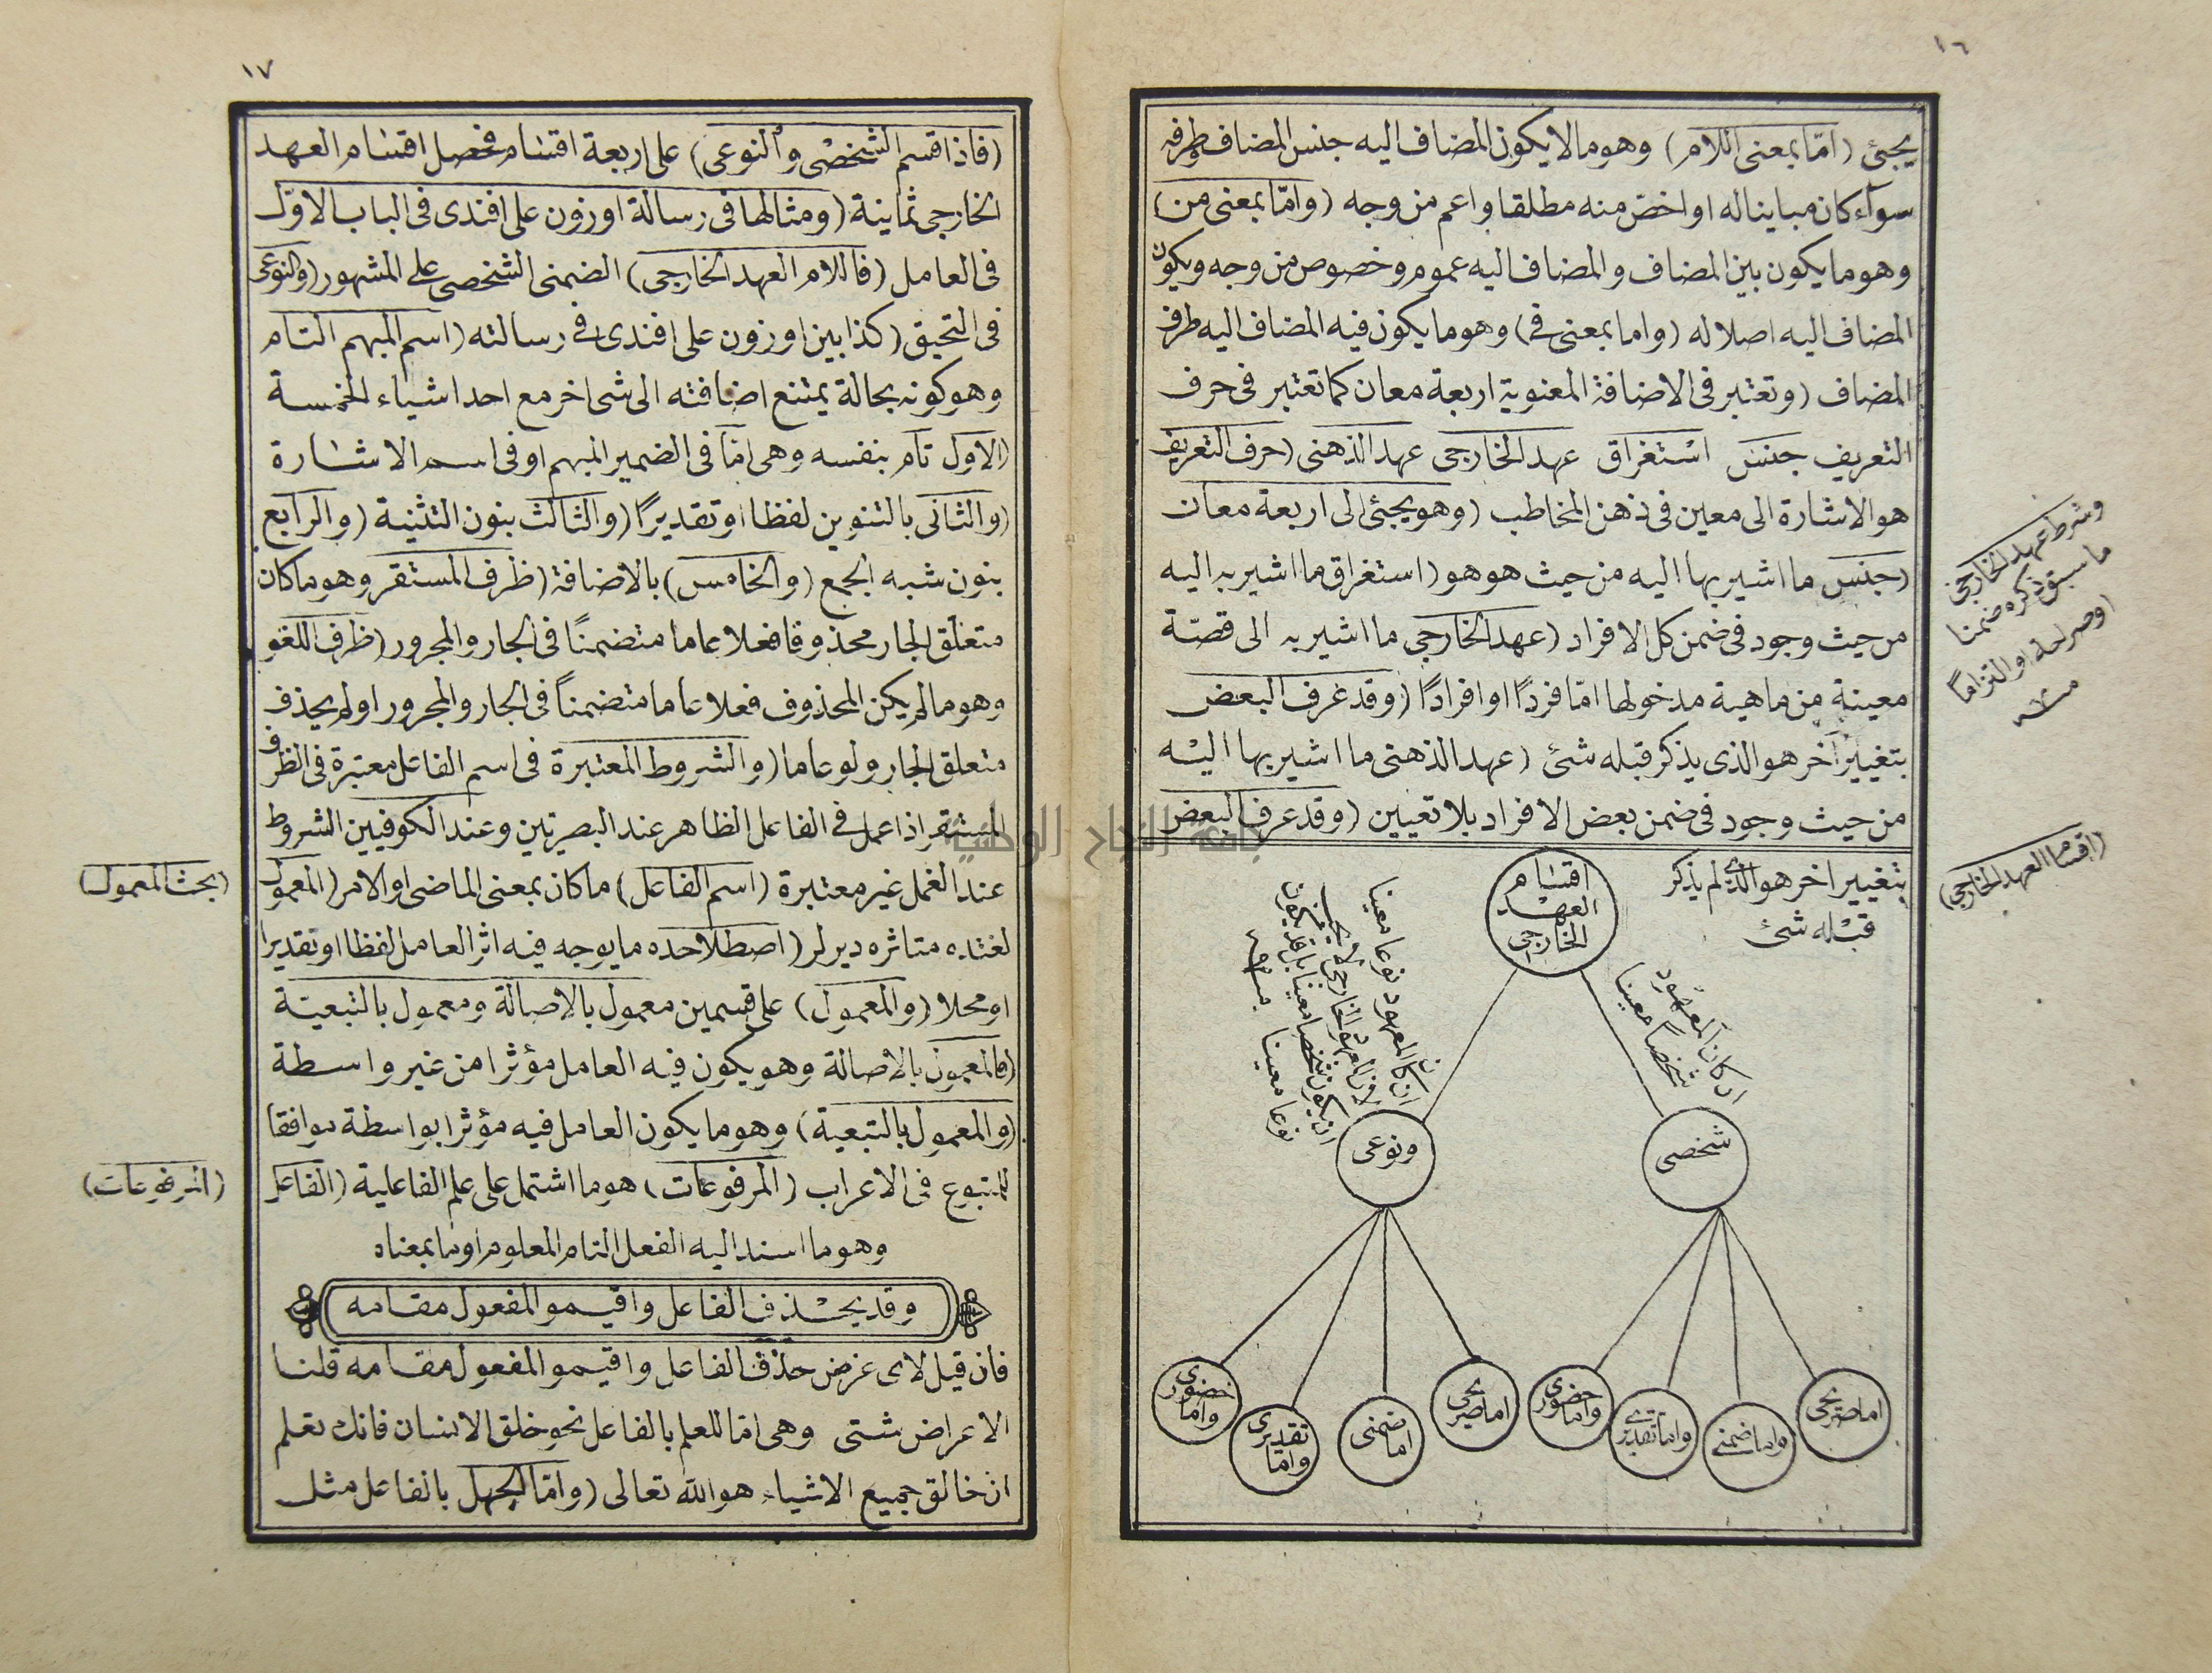 ١٦
يجئ (امّا بمعنى اللام) وهو ما لا يكون المضاف اليه جنس المضاف وظرفه
سوآء كان مباينا له او اخصّ منه مطلقا و اعم من وجه (وامّا بمعنى من)
وهو ما يكون بين المضاف والمضاف اليه عموم وخصوص من وجه ويكون
المضاف اليه اصلا له (واما بمعنى فى) وهو ما يكون فيه المضاف اليه ظرف
المضاف (وتعتبر فى الاضافة المعنوية اربعة معان كما تعتبر فى حرف
التعريف جنس استغراق عهد الخارجى عهد الذهنى (حرف التعريف
هو الاشارة الى معين فى ذهن المخاطب (وهو يجئ الى اربعة معان
(جنس ما اشير بها اليه من حيث هو هو (استغراق ما اشير به اليه
من حيث وجود فى ضمن كل الافراد (عهد الخارجى ما اشير به الى قصّة
معينة من ماهية مدخولها امّا فردًا او افرادًا (وقد عرف البعض
بتغيير آخر هو الذى يذكر قبله شئ (عهد الذهنى ما اشير بها اليه
من حيث وجود فى ضمن بعض الافراد بلا تعيين (وقد عرف البعض
بتغيير اخر هو الذى لم يذكر
قبله شئ
وشرط عهد الخارجى
ما سبق ذكره ضمنا
او صراحة او التزاماً
(اقسام العهد الخارجى)
اقسام
العهد
الخارجى
ان كان المعهود
شخصاً معينا
ان كا المعهود نوعا معينا
نوعا معينا
شخصى
ونوعى
اما صريحى
واما ضمنى
واما تقديرى
واما حضورى
اما صريحى
اما ضمنى
واما تقديرى
واما حضورى
١٧
(فاذا قسم الشخصى والنوعى) على اربعة اقسام فحصل اقسام العهد
الخارجى ثمانية (ومثالها فى رسالة اوزون على افندى فى الباب الاوّل
فى العامل (فاللام العهد الخارجى) الضمنى الشخصى على المشهور (والنوعى
فى التحيق (كذا بين اوزون على افندى فى رسالته (اسم المبهم التام
وهو كونه بحالة يمتنع اضافته الى شى اخر مع احد اشياء الخمسة
(الاول تام بنفسه وهى امّا فى الضمير المبهم او فى اسم الاشارة
(والثانى بالتنوين لفظا او تقديرًا (والثالث بنون التثنية (والرابع
بنون شبه الجمع (والخامس) بالاضافة (ظرف المستقر وهو ما كان
متعلق الجار محذوفا فعلا عاما متضمنًا فى الجار والمجرور (ظرف اللغو
وهو ما لم يكن المحذوف فعلا عاما متضمناً فى الجار والمجرور او لم يحذف
متعلق الجار ولو عاما (والشروط المعتبرة فى اسم الفاعل معتبرة فى الظرف
المستقر اذا عمل فى الفاعل الظاهر عند البصريّين وعند الكوفيين الشروط
عند العمل غير معتبرة (اسم الفاعل) ما كان بمعنى الماضى او الامر (المعمول
لغتده متاثره ديرلر (اصطلاحده ما يوجه فيه اثر العامل لفظا او تقديرا
او محلا (والمعمول) على قسمين معمول بالاصالة ومعمول بالتبعيّة
(فالمعمول بالاصالة وهو يكون فيه العامل مؤثرا من غير واسطة
(والمعمول بالتبعية) وهو ما يكون العامل فيه مؤثرا بواسطة موافقا
للمتبوع فى الاعراب (المرفوعات) هو ما اشتمل على علم الفاعلية (الفاعل
وهو ما اسند اليه الفعل التام المعلوم او ما بمعناه
وقد يحذف الفاعل واقيمو المفعول مقامه
فان قيل لاى غرض حذف الفاعل واقيمو المفعول مقامه قلنا
الاعراض شتى وهى امّا للعلم بالفاعل نحو خلق الانسان فانك تعلم
ان خالق جميع الاشياء هو الله تعالى (وامّا الجهل بالفاعل مثل
(بحث المعمول)
(المرفوعات)
جامعة النجاح الوطنية